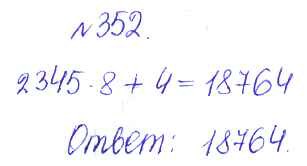 №352.
2345·8+4=18764
Ответ: 18764.